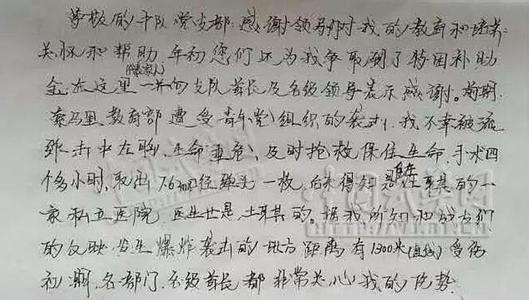 尊敬的斗队党支部:感谢领导对我的教育和培养
关怀和帮助.年初您们还为我争取到了特困补助
金.在这里一并向支队首长及各级领导表示感谢。前期
索马里教育部遭受青年党组织的袭击.我不幸被流
弹击中左胸.生命垂危.及时抢救.保住生命.手术四
个多小时.取出7.62口径弹头一枚.后来得知是在土耳其的一
家私立医院 医生也是土耳其的.据我所知和战友们
的反映.发生爆炸袭击的地方距离有1300米(直线)受伤
初期.各部门.各级首长都非常关心我的伤势